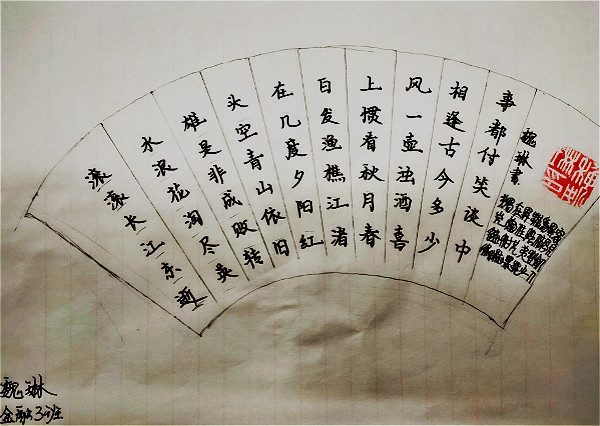 滚滚长江东逝
水浪花淘尽英
雄是非成败转
头空青山依旧
在几度夕阳红
白发渔樵江渚
上惯看秋月春
风一壶浊酒喜
相逢古今多少
事都付笑谈中
魏琳书
魏琳
金融3班